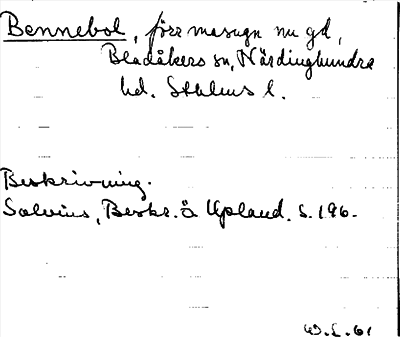 Bennebol, förr masugn nu gd,
Bladåkers sn, Närdinghundra
hd. Sthlms l.
Beskrivning.
Salvius, Beskr. å Upland. s. 196.
W.L.61